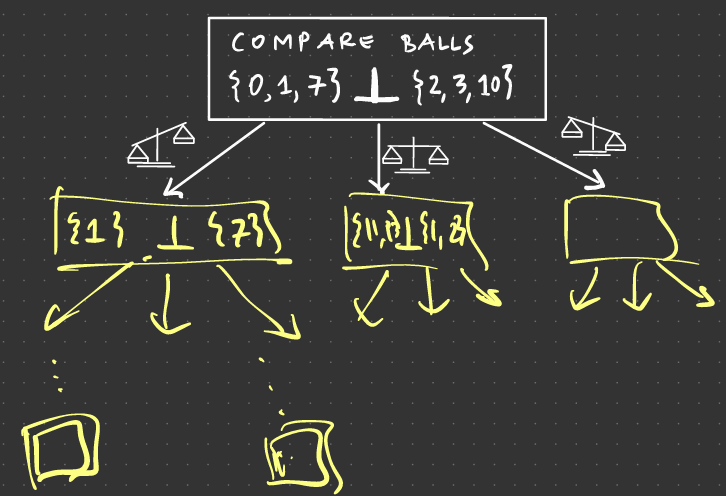 COMPARE BALLS
{0,1,7} ⊥ {2,3,10}
{1} ⊥ {7}